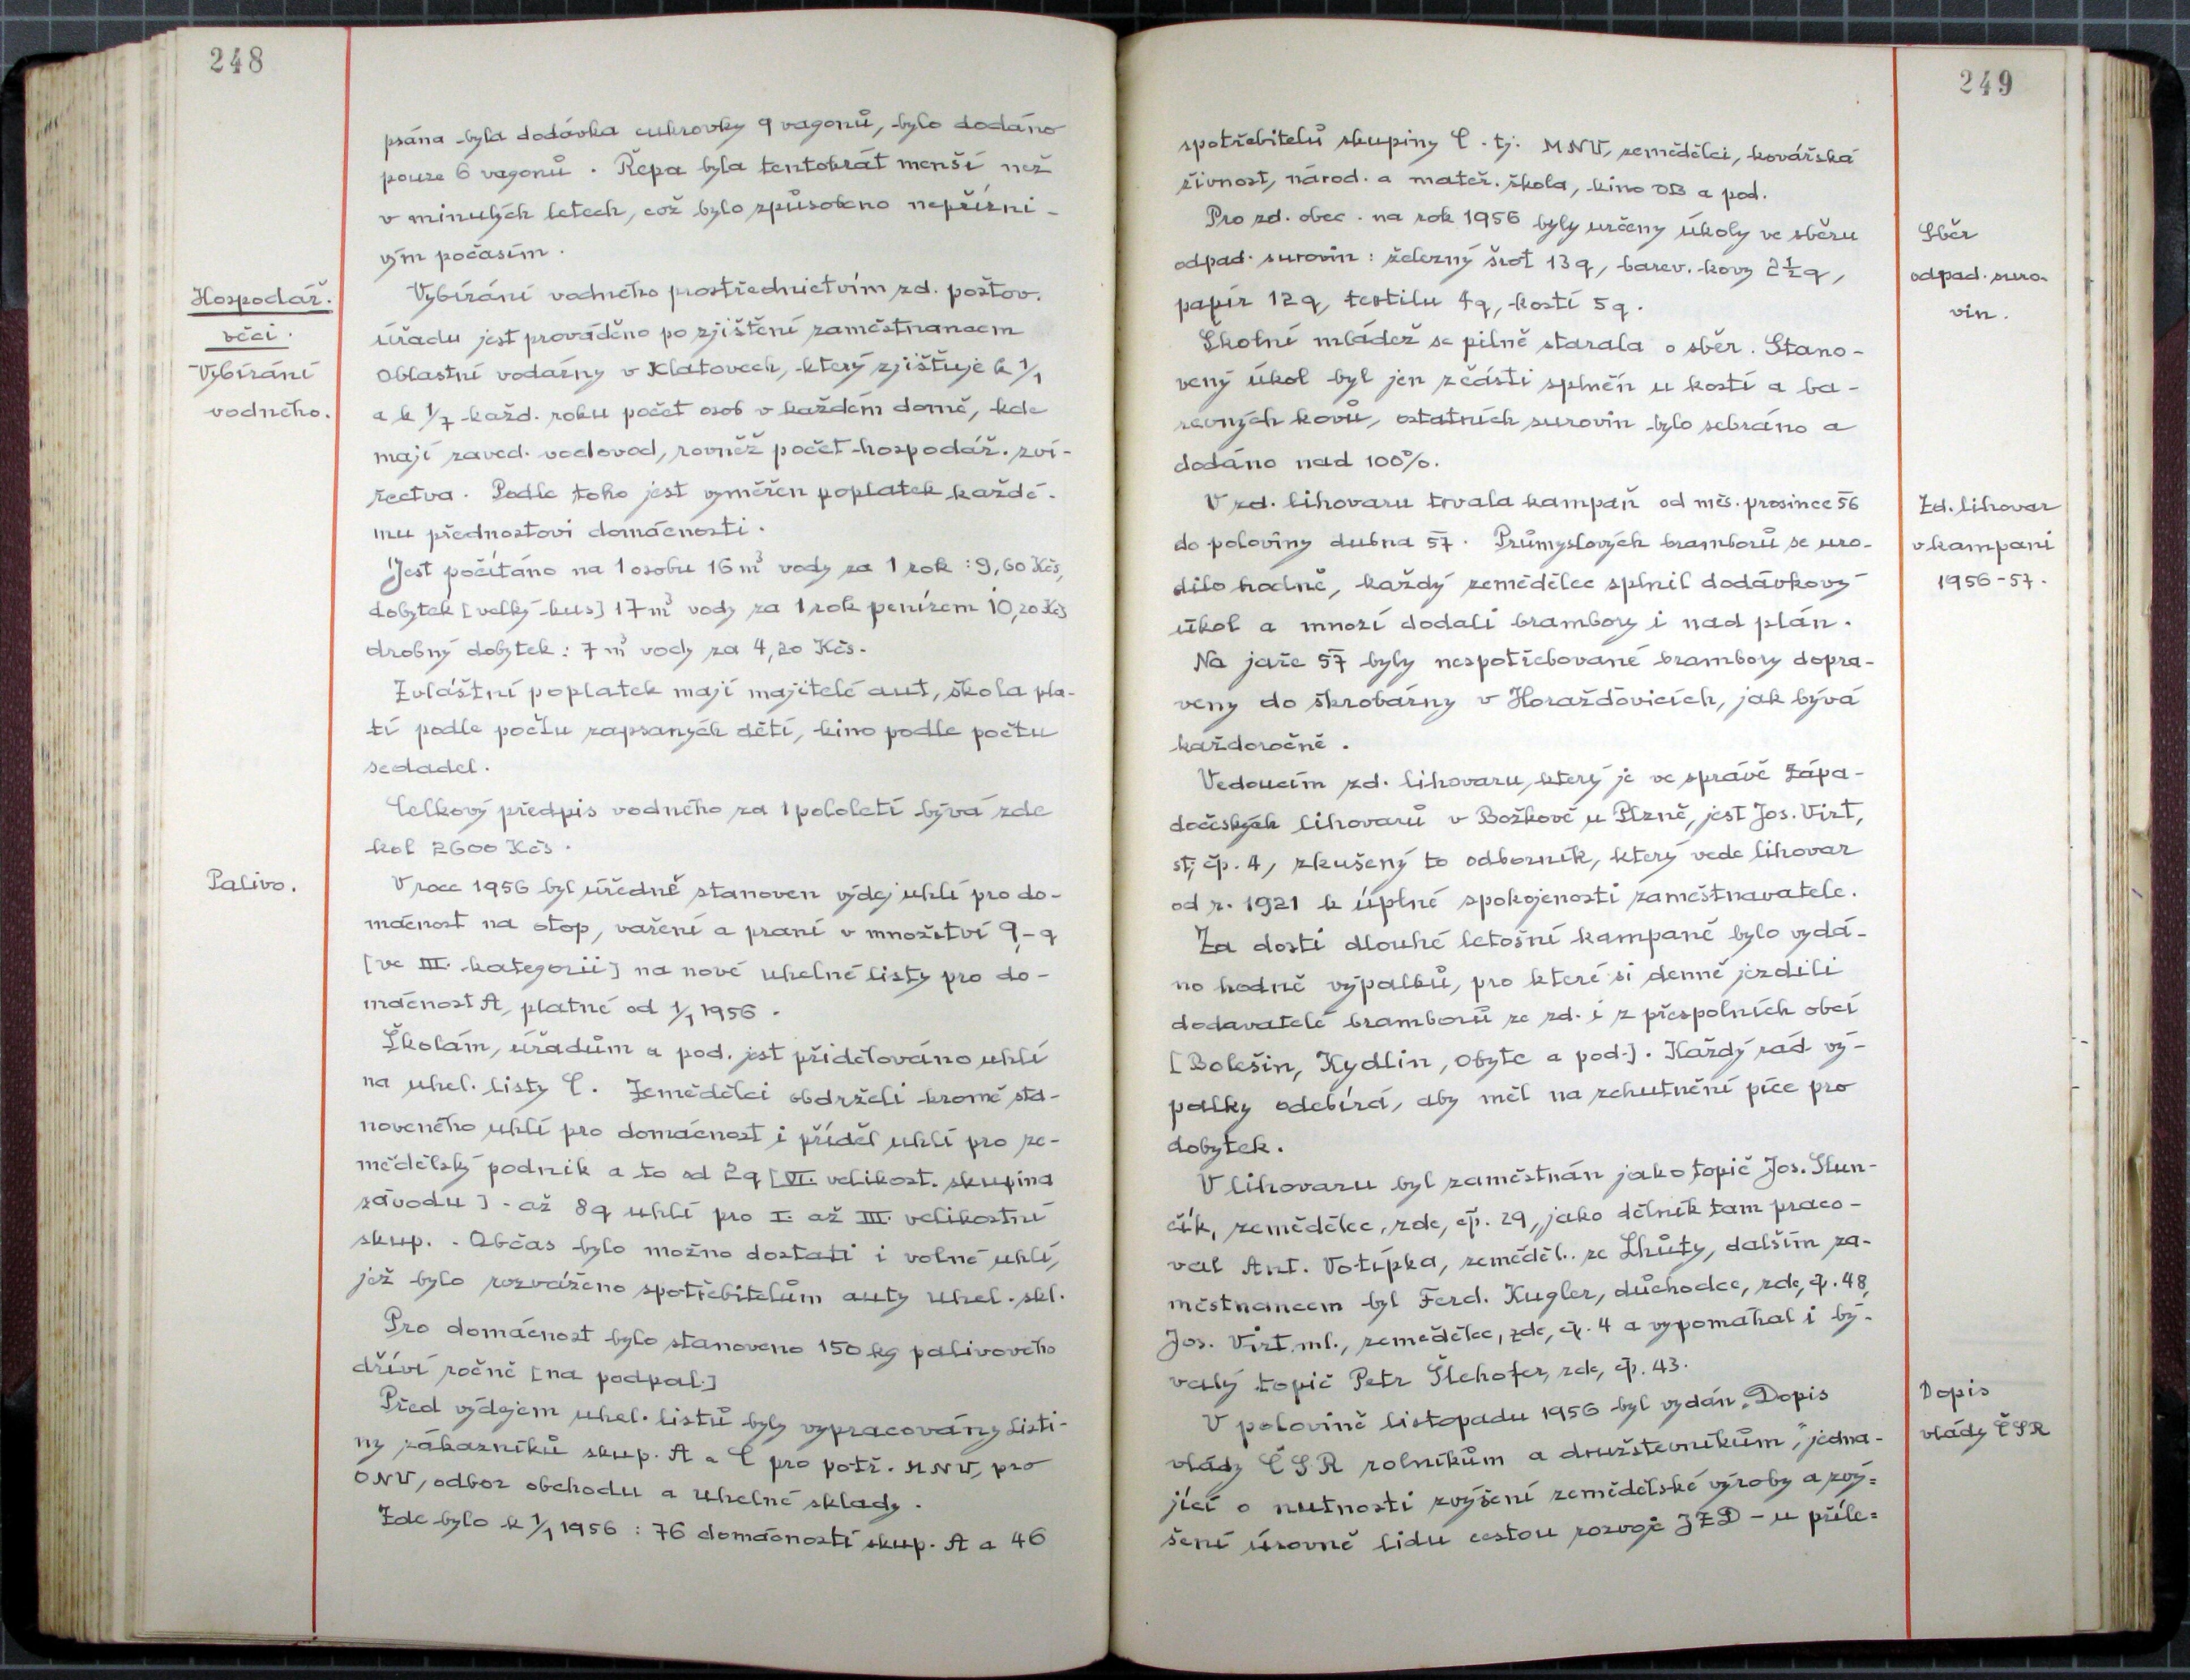 248
psána byla dodávka cukrovky 9 vagonů, bylo dodáno
pouze 6 vagonů. Řepa byla tentokrát menší než
v minulých letech, což bylo způsobeno nepřízni-
vým počasím.
Hospodář.
věci.
Vybírání
vodného.
Vybírání vodného prostřednictvím zd. poštov.
úřadu jest prováděno po zjištění zaměstnancem
Oblastní vodárny v Klatovech, který zjišťuje k 1/1
a k 1/7 každ. roku počet osob v každém domě, kde
mají zaved. vodovod, rovněž počet hospodář. zví-
řectva. Podle toho jest vyměřen poplatek každé-
mu přednostovi domácnosti.
Jest počítáno na 1 osobu 16 m³ vody za 1 rok: 9,60 Kčs,
dobytek [velký kus] 17 m³ vody za 1 rok penízem 10,20 Kčs
drobný dobytek: 7 m³ vody za 4,20 Kčs.
Zvláštní poplatek mají majitelé aut, škola pla-
tí podle počtu zapsaných dětí, kino podle počtu
sedadel.
Celkový předpis vodného za 1 pololetí bývá zde
kol 2600 Kčs.
Palivo.
V roce 1956 byl úředně stanoven výdej uhlí pro do-
mácnost na otop, vaření a praní v množství 9,- q
[ve III. kategorii] na nové uhelné listy pro do-
mácnost A, platné od 1/1 1956.
Školám, úřadům a pod. jest přidělováno uhlí
na uhel. listy C. Zemědělci obdrželi kromě sta-
noveného uhlí pro domácnost i příděl uhlí pro ze-
mědělský podnik a to od 2q [VI. velikost. skupina
závodu] - až 8q uhlí pro I. až III. velikostní
skup. Občas bylo možno dostati i volné uhlí,
jež bylo rozváženo spotřebitelům auty uhel. skl.
Pro domácnost bylo stanoveno 150 kg palivového
dříví ročně [na podpal.]
Před výdejem uhel. listů byly vypracovány listi-
ny zákazníků skup. A a C pro potř. MNV, pro
ONV, odbor obchodu a uhelné sklady.
Zde bylo k 1/1 1956: 76 domácností skup. A a 46
249
spotřebitelů skupiny C. tj. MNV, zemědělci, kovářská
živnost, národ. a mateř. škola, kino OB a pod.
Sběr
odpad. suro-
vin.
Pro zd. obec. na rok 1956 byly určeny úkoly ve sběru
odpad. surovin: železný šrot 13q, barev. kovy 2½q,
papír 12q, textilu 4q, kostí 5q.
Školní mládež se pilně starala o sběr. Stano-
vený úkol byl jen zčásti splněn u kostí a ba-
revných kovů, ostatních surovin bylo sebráno a
dodáno nad 100%.
Zd. lihovar
v kampani
1956-57.
V zd. lihovaru trvala kampaň od měs. prosince 56
do poloviny dubna 57. Průmyslových bramborů se uro-
dilo hodně, každý zemědělec splnil dodávkový
úkol a mnozí dodali brambory i nad plán.
Na jaře 57 byly nespotřebované brambory dopra-
veny do škrobárny v Horažďovicích, jak bývá
každoročně.
Vedoucím zd. lihovaru, který je ve správě Zápa-
dočeských lihovarů v Božkově u Plzně, jest Jos. Virt,
st; čp. 4, zkušený to odborník, který vede lihovar
od r. 1921 k úplné spokojenosti zaměstnavatele.
Za dosti dlouhé letošní kampaně bylo vydá-
no hodně výpalků, pro které si denně jezdili
dodavatelé bramborů ze zd. i z přespolních obcí
[Bolešin, Kydlin, Obytc a pod.]. Každý rád vý-
palky odebírá, aby měl na zchutnění píce pro
dobytek.
V lihovaru byl zaměstnán jako topič Jos. Slun-
čík, zemědělec, zde, čp. 29, jako dělník tam praco-
val Ant. Votípka, zeměděl. ze Lhůty, dalším za-
městnancem byl Ferd. Kugler, důchodce, zde, čp. 48,
Jos. Virt. ml., zemědělec, zde, čp. 4 a vypomáhal i bý-
valý topič Petr Šlehofer, zde, čp. 43.
Dopis
vlády ČSR
V polovině listopadu 1956 byl vydán „Dopis
vlády ČSR rolníkům a družstevníkům", jedna-
jící o nutnosti zvýšení zemědělské výroby a zvý=
šení úrovně lidu cestou rozvoje JZD - u příle=